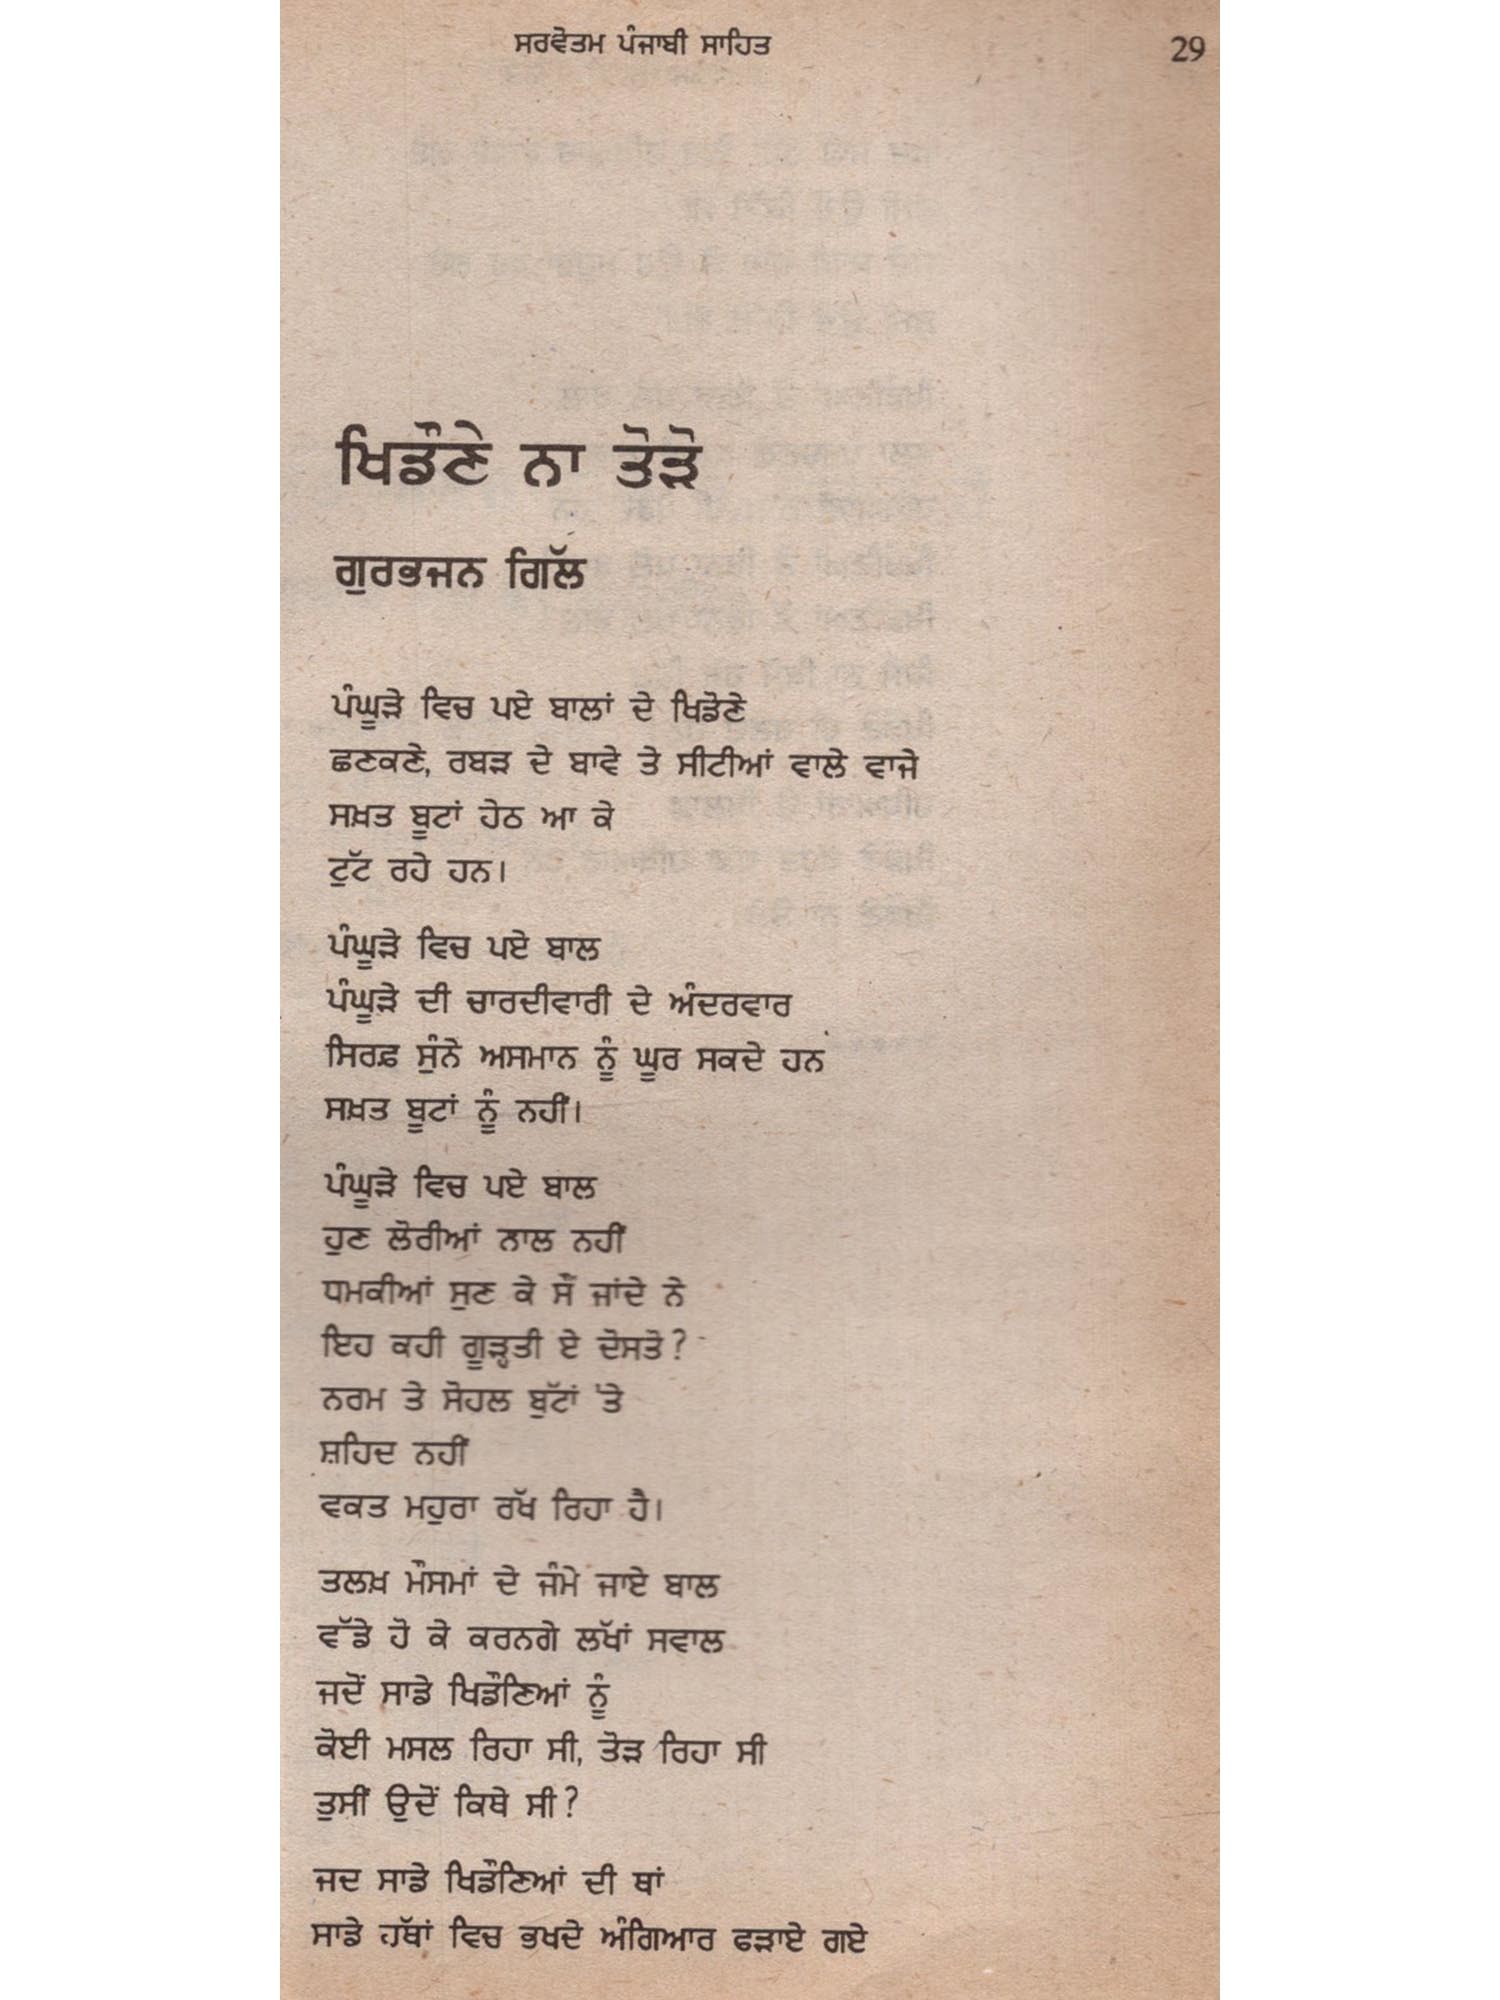 ਸਰਵੋਤਮ ਪੰਜਾਬੀ ਸਾਹਿਤ 29
ਖਿਡੌਣੇ ਨਾ ਤੋੜੋ
ਗੁਰਭਜਨ ਗਿੱਲ
ਪੰਘੂੜੇ ਵਿਚ ਪਏ ਬਾਲਾਂ ਦੇ ਖਿਡੋਣੇ
ਛਣਕਣੇ, ਰਬੜ ਦੇ ਬਾਵੇ ਤੇ ਸੀਟੀਆਂ ਵਾਲੇ ਵਾਜੇ
ਸਖ਼ਤ ਬੂਟਾਂ ਹੇਠ ਆ ਕੇ
ਟੁੱਟ ਰਹੇ ਹਨ।
ਪੰਘੂੜੇ ਵਿਚ ਪਏ ਬਾਲ
ਪੰਘੂੜੇ ਦੀ ਚਾਰਦੀਵਾਰੀ ਦੇ ਅੰਦਰਵਾਰ
ਸਿਰਫ਼ ਸੁੰਨੇ ਅਸਮਾਨ ਨੂੰ ਘੂਰ ਸਕਦੇ ਹਨ
ਸਖ਼ਤ ਬੂਟਾਂ ਨੂੰ ਨਹੀਂ।
ਪੰਘੂੜੇ ਵਿਚ ਪਏ ਬਾਲ
ਹੁਣ ਲੋਰੀਆਂ ਨਾਲ ਨਹੀਂ
ਧਮਕੀਆਂ ਸੁਣ ਕੇ ਸੌਂ ਜਾਂਦੇ ਨੇ
ਇਹ ਕਹੀ ਗੂੜ੍ਹਤੀ ਏ ਦੋਸਤੋ?
ਨਰਮ ਤੇ ਸੋਹਲ ਬੁੱਟਾਂ 'ਤੇ
ਸ਼ਹਿਦ ਨਹੀਂ
ਵਕਤ ਮਹੁਰਾ ਰਖੱ ਰਿਹਾ ਹੈ।
ਤਲਖ਼ ਮੌਸਮਾਂ ਦੇ ਜੰਮੇ ਜਾਏ ਬਾਲ
ਵੱਡੇ ਹੋ ਕੇ ਕਰਨਗੇ ਲਖੱਾਂ ਸਵਾਲ
ਜਦੋਂ ਸਾਡੇ ਖਿਡੌਣਿਆਂ ਨੂੰ
ਕੋਈ ਮਸਲ ਰਿਹਾ ਸੀ, ਤੋੜ ਰਿਹਾ ਸੀ
ਤੁਸੀਂ ਉਦੋਂ ਕਿਥੇ ਸੀ?
ਜਦ ਸਾਡੇ ਖਿਡੌਣਿਆਂ ਦੀ ਥਾਂ
ਸਾਡੇ ਹੱਥਾਂ ਵਿਚ ਭਖਦੇ ਅੰਗਿਆਰ ਫੜਾਏ ਗਏ